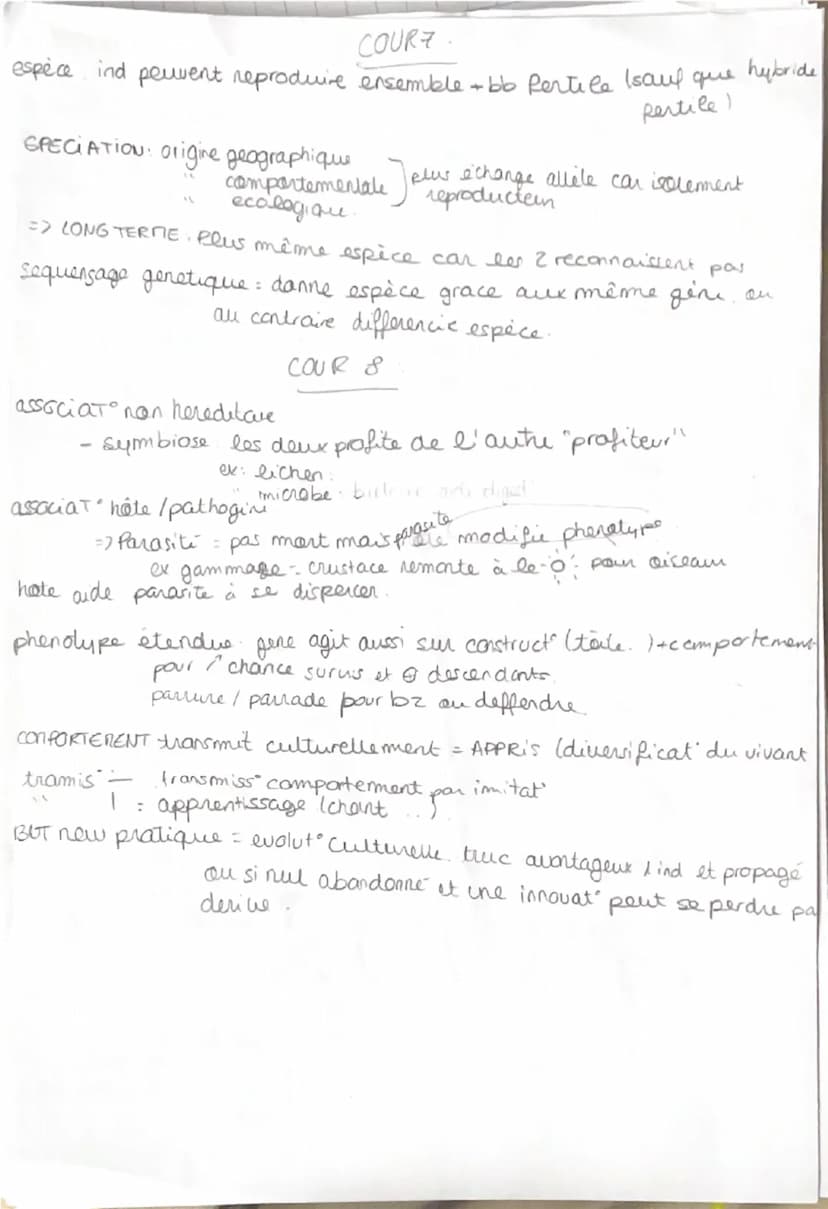 COUR 7.
espèce ind peuvent reproduire ensemble + bb fertile (sauf que hybride
fertile)
SPECIATION: origine geographique
" comportementale
" ecologique.
plus échange allèle car isolement
reproductein
=> LONG TERME. Plus même espèce car les 2 reconnaissent pas
sequensage genetique = danne espèce grace aux même gène ou
au contraire differencie espèce.
COUR 8
associat° non hereditaire
- symbiose les deux profite de l'autre "profiteur"
ex: lichen
" microbe
associat° hôte / pathogène
=> Parasité = pas mort mais parasite modifie phenotype
ex gammare - crustace remonte à la pour oiseau
hote aide parasite à se dispercer.
phenotype étendue gene agit aussi sur construct° (toile.) + comportement
pour ↑ chance survis et ⊕ descendants
parrure / parrade pour bz ou deffendre
COMPORTEMENT transmit culturellement = APPRIS (diversificat° du vivant
tramis° — transmiss° comportement par imitat°
" | = apprentissage (chant ..)
BUT new pratique = evolut° culturelle truc avantageux 1 ind et propagé
ou si nul abandonné et une innovat° peut se perdre pa
derive.